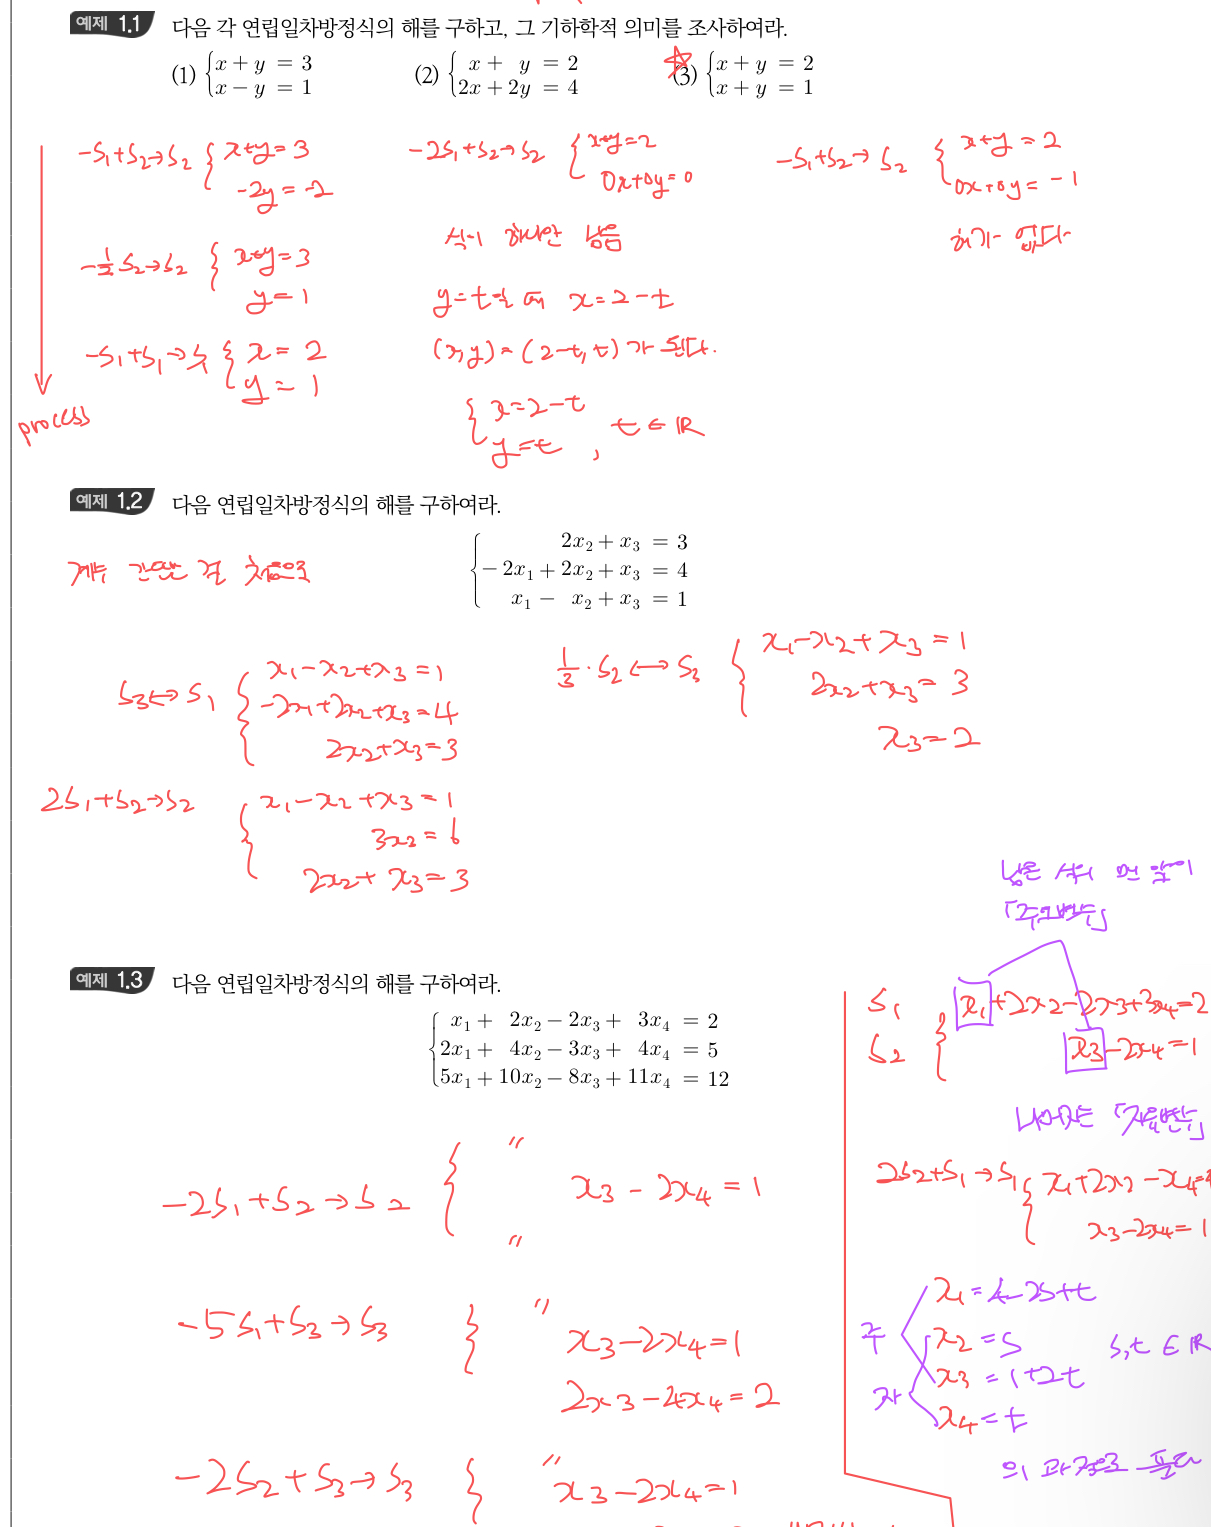 예제 1.1 다음 각 연립일차방정식의 해를 구하고, 그 기하학적 의미를 조사하여라.
(1) { x + y = 3
x − y = 1
(2) { x + y = 2
2x + 2y = 4
☆(3) { x + y = 2
x + y = 1
-S₁+S₂→S₂ { x+y=3
-2y=-2
-½S₂→S₂ { x+y=3
y=1
-S₁+S₁→S₁ { x=2
y=1
process
-2S₁+S₂→S₂ { x+y=2
0x+0y=0
식이 하나만 남음
y=t일 때 x=2-t
(x,y)=(2-t,t)가 된다.
{ x=2-t
y=t , t∈ℝ
-S₁+S₂→S₂ { x+y=2
0x+0y=-1
해가 없다
예제 1.2 다음 연립일차방정식의 해를 구하여라.
{ 2x₂ + x₃ = 3
− 2x₁ + 2x₂ + x₃ = 4
x₁ − x₂ + x₃ = 1
계수 간단한 걸 처음으로
S₃↔S₁ { x₁-x₂+x₃=1
-2x₁+2x₂+x₃=4
2x₂+x₃=3
2S₁+S₂→S₂ { x₁-x₂+x₃=1
3x₃=6
2x₂+x₃=3
⅓·S₂↔S₃ { x₁-x₂+x₃=1
2x₂+x₃=3
x₃=2
예제 1.3 다음 연립일차방정식의 해를 구하여라.
{ x₁ + 2x₂ − 2x₃ + 3x₄ = 2
2x₁ + 4x₂ − 3x₃ + 4x₄ = 5
5x₁ + 10x₂ − 8x₃ + 11x₄ = 12
-2S₁+S₂→S₂ { "
x₃-2x₄=1
"
-5S₁+S₃→S₃ { "
x₃-2x₄=1
2x₃-4x₄=2
-2S₂+S₃→S₃ { "
x₃-2x₄=1
남은 식의 맨 앞이
「주요변수」
S₁ { x₁+2x₂-2x₃+3x₄=2
S₂ x₃-2x₄=1
나머지는 「자유변수」
2S₂+S₁→S₁ { x₁+2x₂-x₄=4
x₃-2x₄=1
x₁=4-2s+t
주 x₂=s s,t∈ℝ
x₃=1+2t
자 x₄=t
의 과정으로 푼다